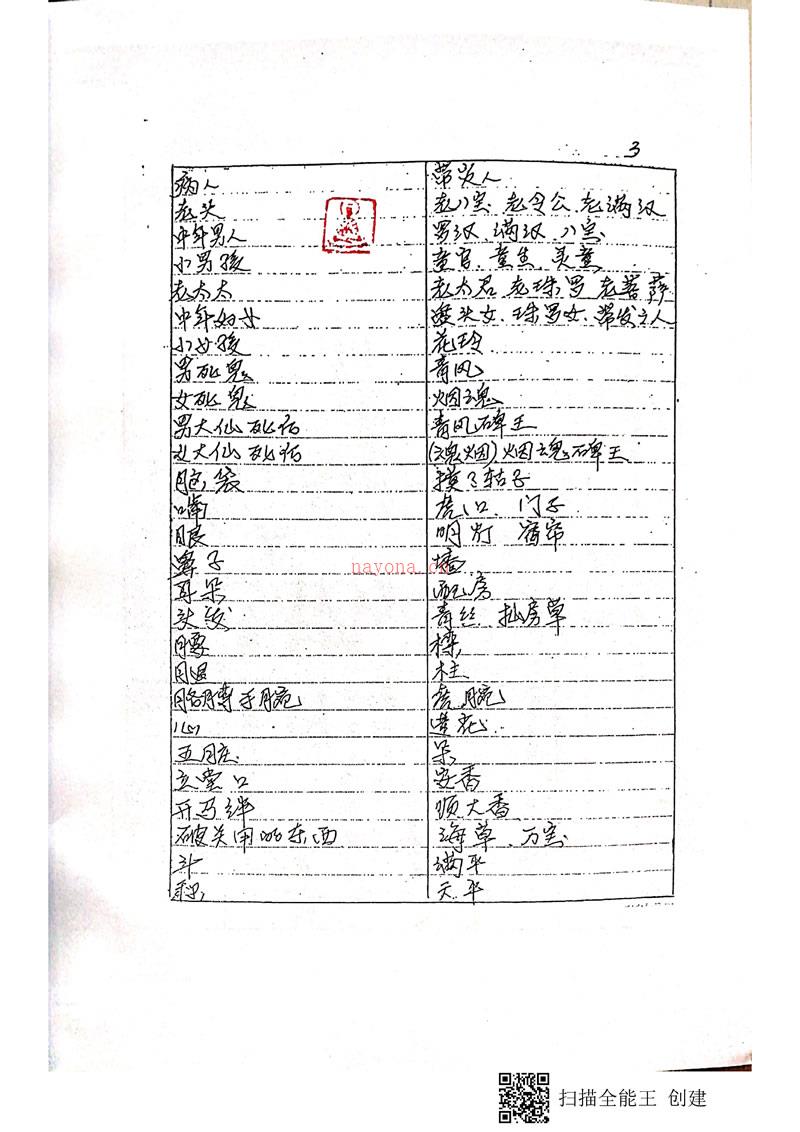 3
病人 带发人
老头 老八宝. 老令公. 老满汉
中年男人 罗汉、满汉、八宝
小男孩 童官. 童生. 灵童
老太太 老太君 老珠罗 老菩萨
中年妇女 女、珠罗女、带发主人
小女孩 花玲
男死鬼 青风
女死鬼 烟魂
男大仙死后 青风碑王
女大仙死后 (魂烟)烟魂碑王
脑袋 子
嘴 虎口、门子
眼 明灯 宿帘
鼻子 墙
耳朵 配房
头发 青丝、扯房草
腰 樑
腿 柱
胳膊手腕 虎腕
心 莲花
五脏 朵
立堂口 安香
开马绊 顺大香
破关用的东西 海草、万宝
斗 满平
秤 天平
nayona.cn
扫描全能王 创建